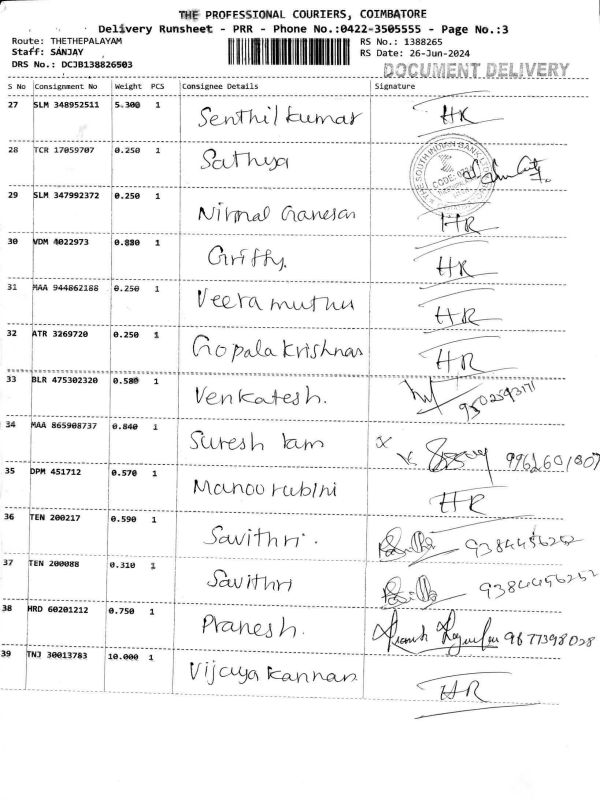 THE PROFESSIONAL COURIERS, COIMBATORE
Delivery Runsheet - PRR - Phone No.:0422-3505555 - Page No.:3
Route: THETHEPALAYAM
Staff: SANJAY
DRS No.: DCJB138826503
RS No.: 1388265
RS Date: 26-Jun-2024
DOCUMENT DELIVERY
S No Consignment No Weight PCS Consignee Details Signature
27 SLM 348952511 5.300 1 Senthil kumar HR
28 TCR 17059707 0.250 1 Sathya
THE SOUTH INDIAN BANK LTD
29 SLM 347992372 0.250 1 Nirmal Ganesan HR
30 VDM 4022973 0.880 1 Griffy. HR
31 MAA 944862188 0.250 1 Veeramuthu HR
32 ATR 3269720 0.250 1 Gopala Krishnan HR
33 BLR 475302320 0.580 1 Venkatesh.
34 MAA 865908737 0.840 1 Suresh ram 9962601807
35 DPM 451712 0.570 1 Manoo rubini HR
36 TEN 200217 0.590 1 Savithri. 9384456252
37 TEN 200088 0.310 1 Savithri 9384456252
38 HRD 60201212 0.750 1 Pranesh. 9677398028
39 TNJ 30013783 10.000 1 Vijaya Kannan HR